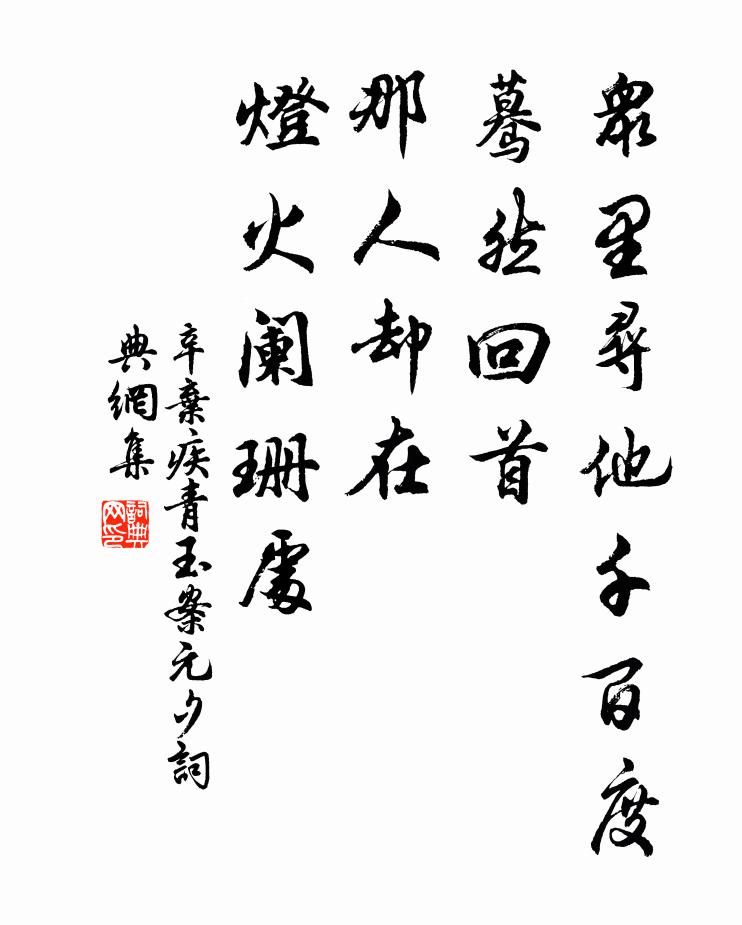 眾里尋他千百度
驀然回首
那人却在
燈火阑珊處
辛棄疾青玉案元夕詞
典網集
詞典网印